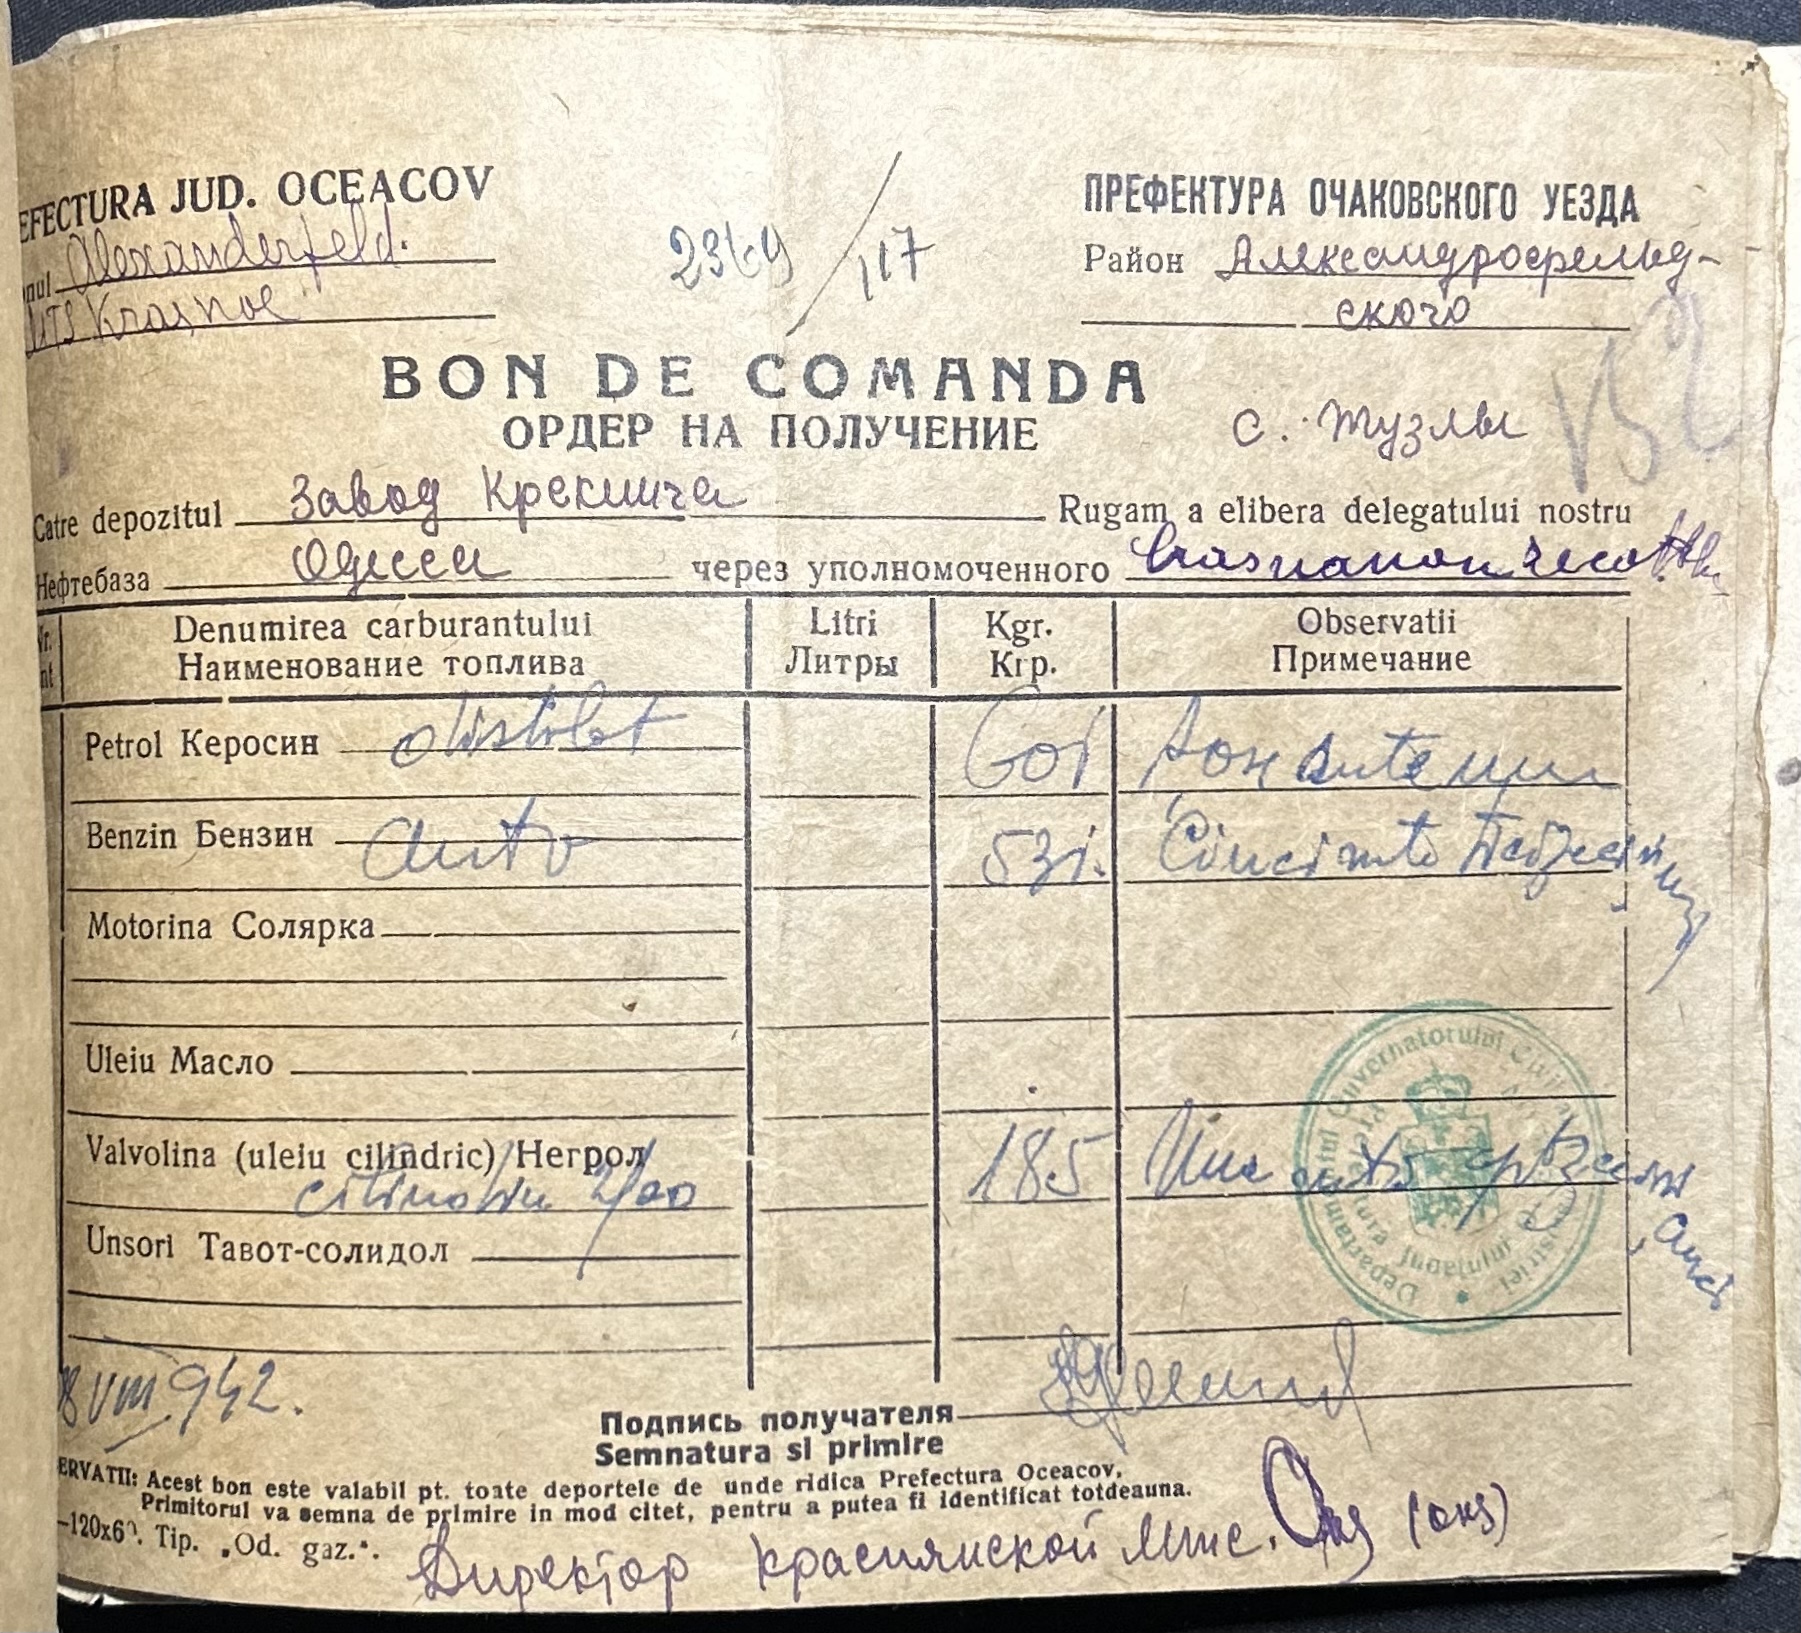 EFECTURA JUD. OCEACOV
nul Alexanderfeld.
MTS Krasnoe
2369/117
ПРЕФЕКТУРА ОЧАКОВСКОГО УЕЗДА
Район Александрофельд-
ского
BON DE COMANDA
ОРДЕР НА ПОЛУЧЕНИЕ
с. Тузлы
Catre depozitul Завод Крекинга Rugam a elibera delegatului nostru
Нефтебаза Одесси через уполномоченного
Nr. Denumirea carburantului Litri Kgr. Observatii
nt Наименование топлива Литры Кгр. Примечание
Petrol Керосин distilat 601
Benzin Бензин auto 531.
Motorina Солярка
Uleiu Масло
Valvolina (uleiu cilindric) Негрол 185
Unsori Тавот-солидол
Departamentul Guvernatorului Civil
8 VIII 942.
Подпись получателя
Semnatura si primire
ERVATII: Acest bon este valabil pt. toate deportele de unde ridica Prefectura Oceacov.
Primitorul va semna de primire in mod citet, pentru a putea fi identificat totdeauna.
—120x60. Tip. „Od. gaz.“.
Директор Краснянской Мтс.